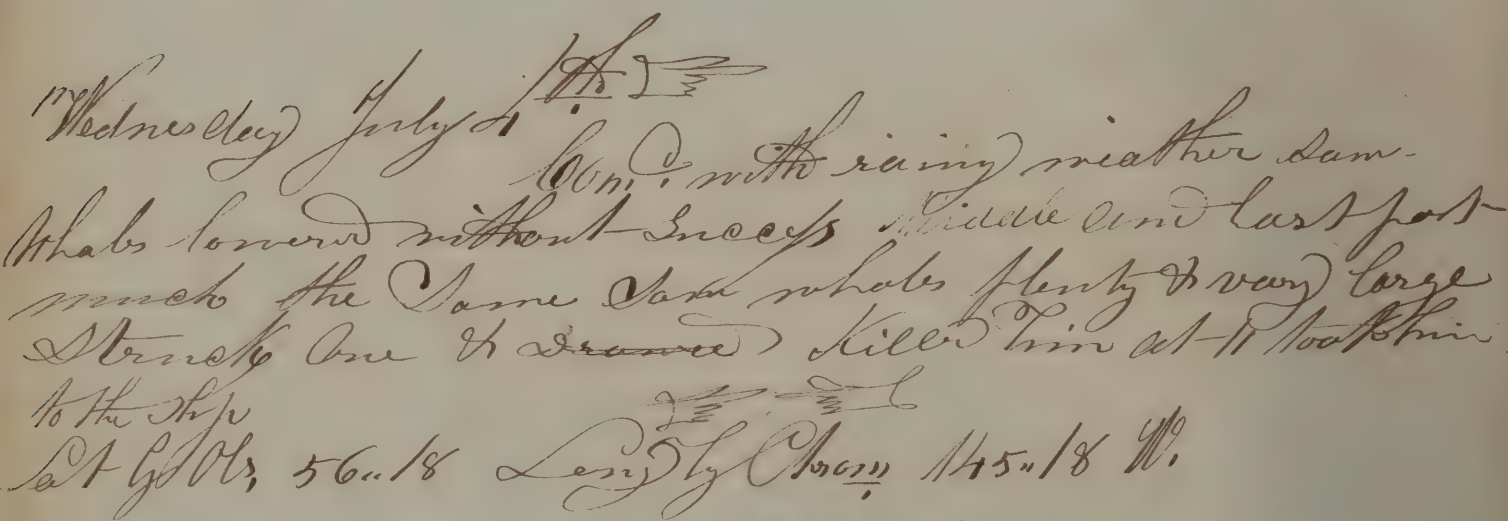 Wednesday July 4th
Com.c. with rainy weather saw
Whales lowered without Success Middle and last part
much the Same Saw whales plenty & vary large
Struck One & Drawed Killed him at 11 took him
to the Ship
Lat By Obs, 56..18 Leng By Chrom 145..18 W.